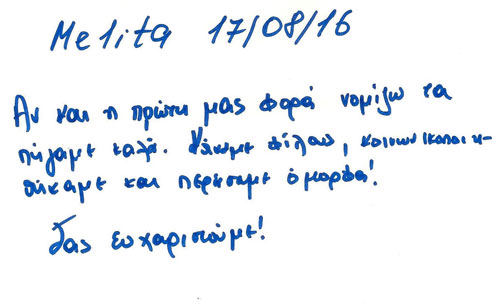 Melita 17/08/16
Αν και η πρώτη μας φορά νομίζω τα
πήγαμε καλά. Κάναμε φίλους, κοινωνικοποιη-
θήκαμε και περάσαμε όμορφα!
Σας ευχαριστούμε!